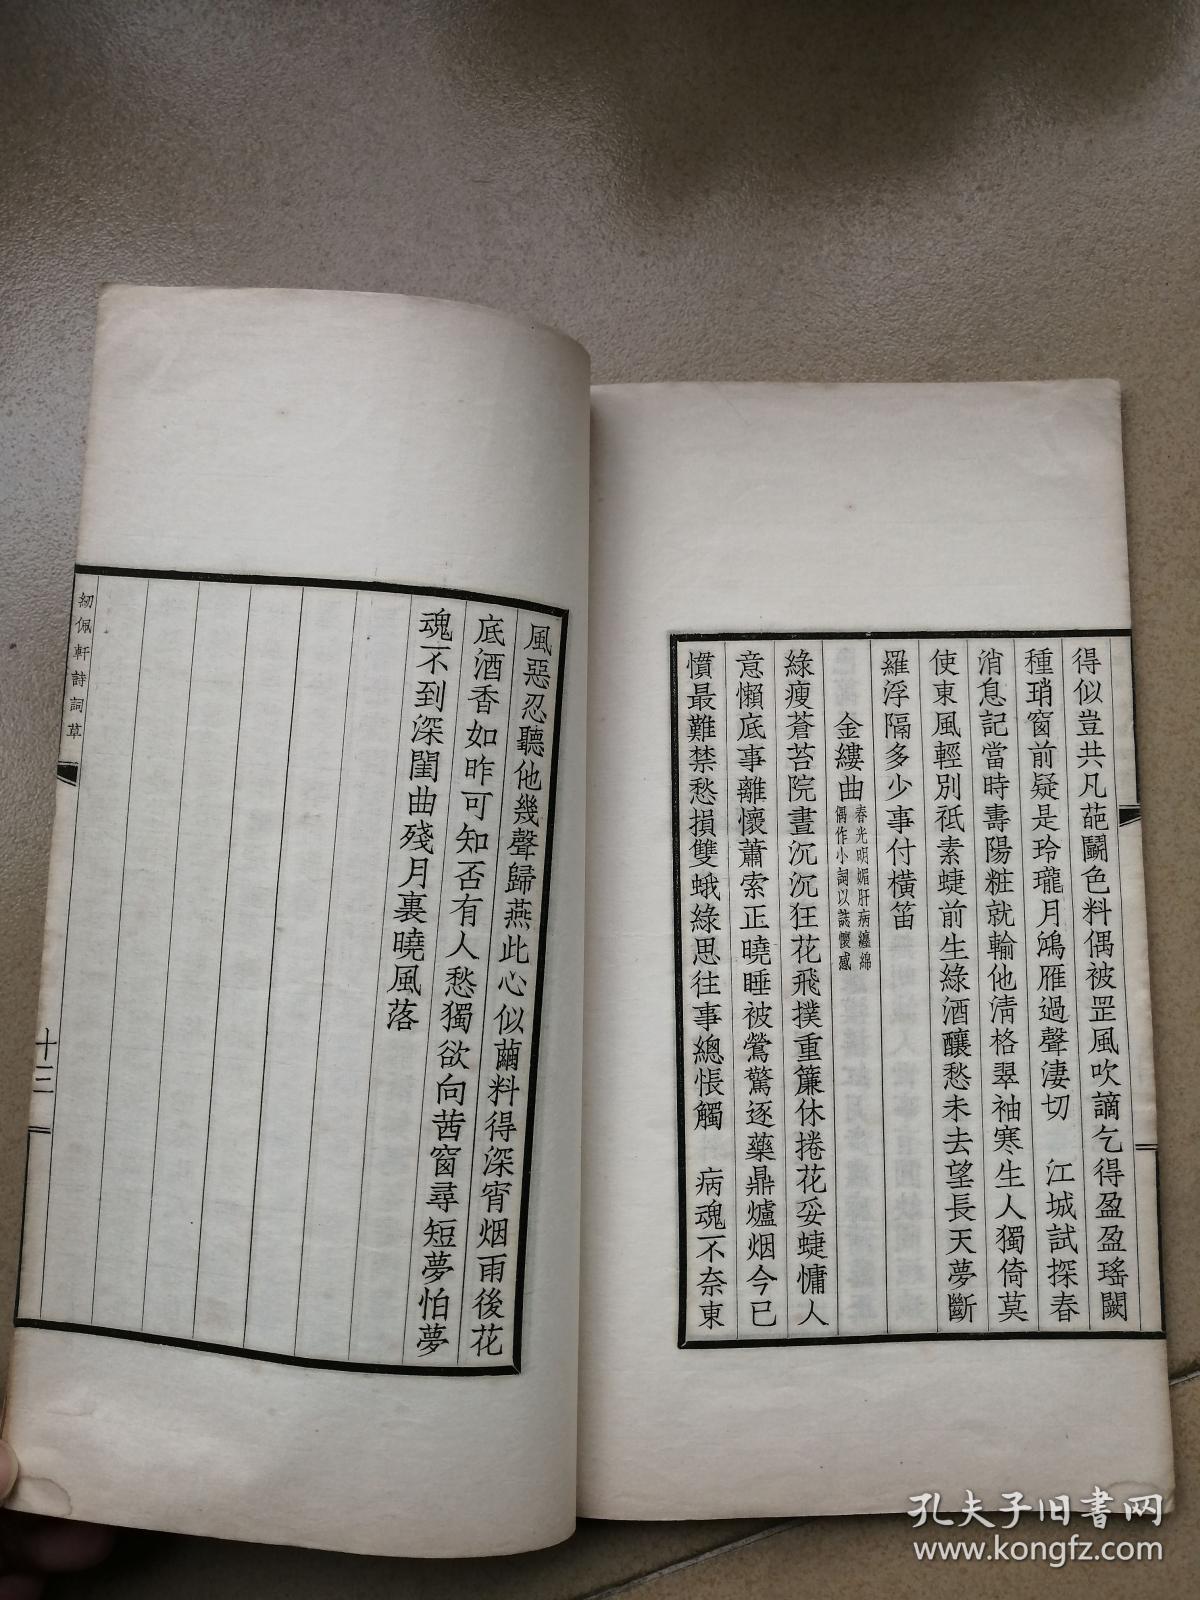 得似豈共凡葩鬭色料偶被罡風吹謫乞得盈盈瑤闕
種瑣窗前疑是玲瓏月鴻雁過聲淒切　江城試探春
消息記當時壽陽粧就輸他清格翠袖寒生人獨倚莫
使東風輕別祗素蜨前生綠酒釀愁未去望長天夢斷
羅浮隔多少事付橫笛
金縷曲
春光明媚肝病纏綿
偶作小詞以誌懷感
綠瘦蒼苔院晝沉沉狂花飛撲重簾休捲花妥蜨慵人
意懶底事離懷蕭索正曉睡被鶯驚逐藥鼎爐烟今已
慣最難禁愁損雙蛾綠思往事總悵觸　病魂不奈東
風惡忍聽他幾聲歸燕此心似繭料得深宵烟雨後花
底酒香如昨可知否有人愁獨欲向茜窗尋短夢怕夢
魂不到深閨曲殘月裏曉風落
紉佩軒詩詞草
十三
孔夫子旧书网
www.kongfz.com